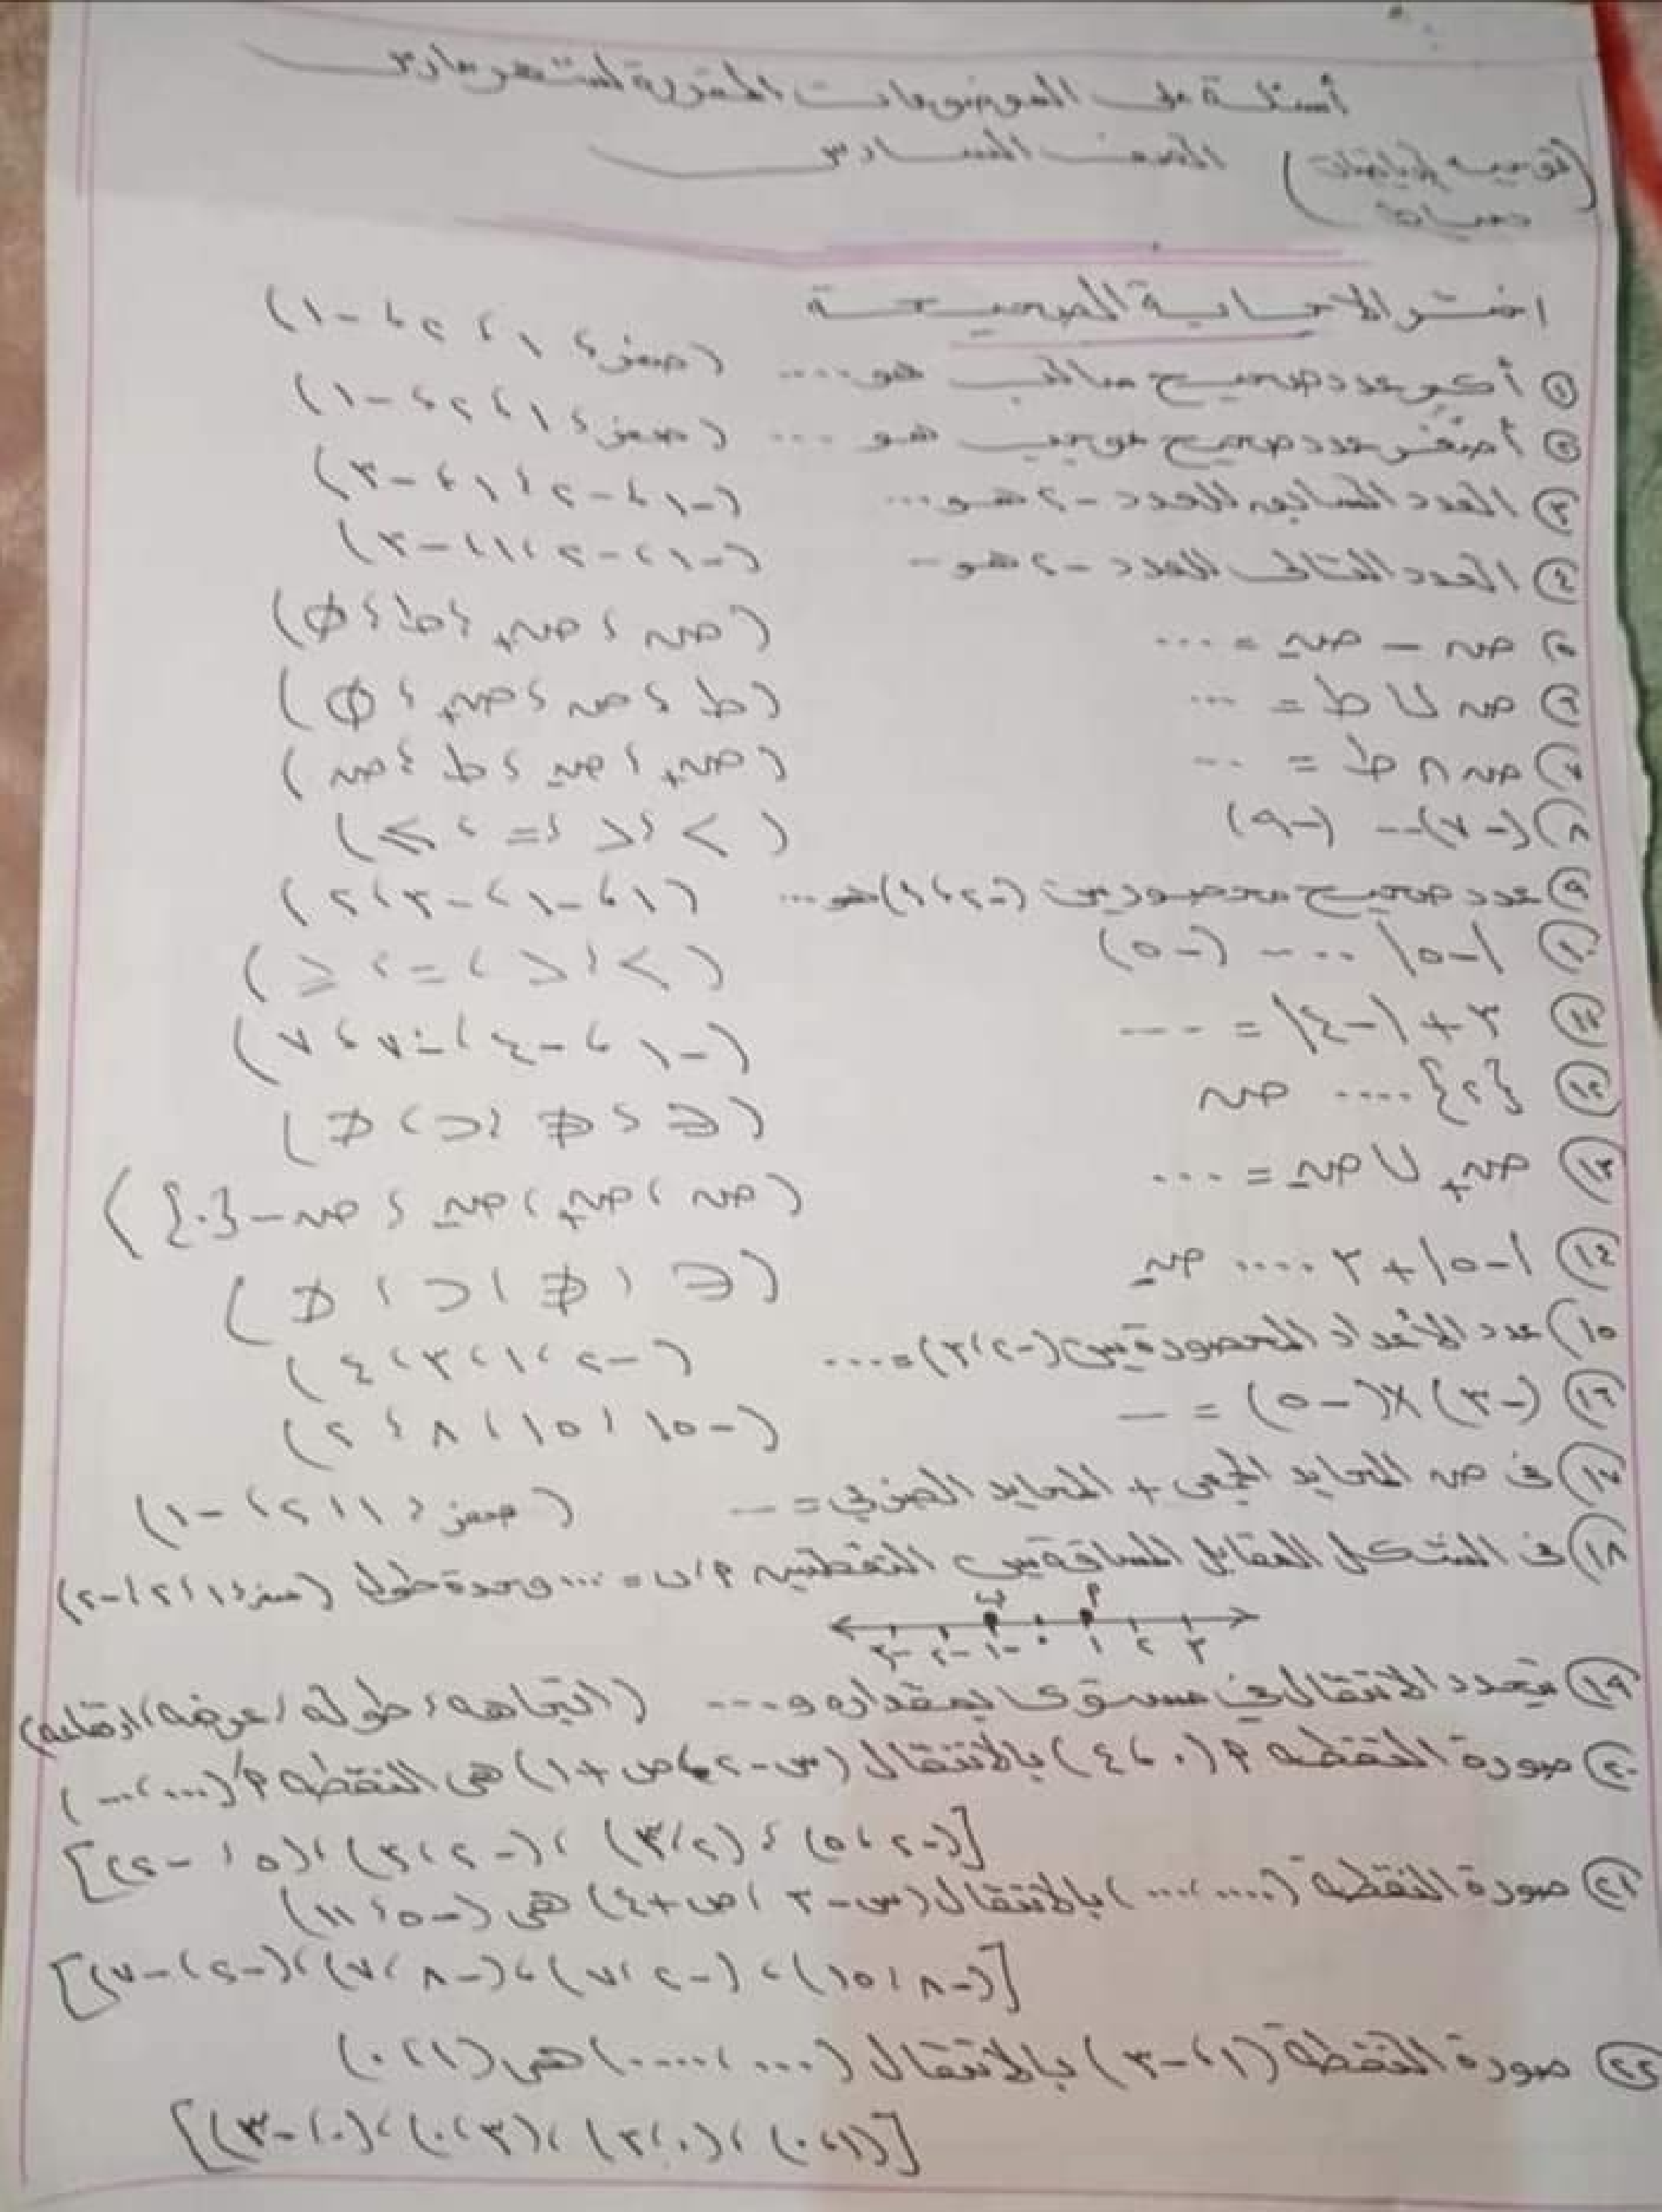 أسئلة على الموضوعات المقررة لشهر مارس
(توجيه الرياضيات الصف السادس
اختر الإجابة الصحيحة
① أكبر عدد صحيح سالب هو .... (صفر ؛ ١ ، ٢ ، -١)
② أصغر عدد صحيح موجب هو ... (صفر ؛ ١ ، ٢ ، -١)
③ العدد السابق للعدد -٢ هو ... (-١ ، -٢ ، ١ ، -٣)
④ العدد التالى للعدد -٢ هو - (-١ ، -٢ ، ١ ، -٣)
⑤ صہ - صہ₋ = ... (صہ ؛ صہ₊ ؛ ط ؛ ∅)
⑥ صہ ∪ ط = ... (ط ؛ صہ ؛ صہ₊ ؛ ∅)
⑦ صہ ∩ ط = ... (صہ₊ ؛ صہ₋ ؛ ط ؛ صہ)
⑧ (-٧) -- (-٩)
⑨ عدد صحيح محصور بين (-٢ ، ١) هو ... (١ ، -١ ، -٣ ، ٢)
⑩ |-٥| .... (-٥)
⑪ ٣ + |-٤| = --- (-١ ، -٤ ، -٧ ، ٧)
⑫ {٢} .... صہ
⑬ صہ₊ ∪ صہ₋ = ... (صہ ، صہ₊ ، صہ₋ ؛ صہ - {٠})
⑭ |-٥| + ٢ .... صہ₋
⑮ عدد الأعداد المحصورة بين (-٢ ، ٣) = ... (-٢ ، ١ ، ٣ ، ٤)
⑯ (-٣) × (-٥) = — (-١٥ ؛ ١٥ ، ٨ ؛ ٢)
⑰ فى صہ المحايد الجمعى + المحايد الضربي = — (صفر ؛ ١ ، ٢ ، -١)
⑱ فى الشكل المقابل المسافة بين النقطتين م ، ب = ... وحدة طول (صفر ؛ ١ ، ٢ ، -٢)
م ب
٣ ٢ ١ ٠ -١ -٢ -٣
⑲ يتحدد الانتقال في مستوى بمقداره و ... (اتجاهه ؛ طوله ، عرضه ، ارتفاعه)
⑳ صورة النقطة م (٠ ، ٤) بالانتقال (س - ٢ ، ص + ١) هى النقطة م َ(... ، ...)
[(-٢ ، ٥) ؛ (٢ ، ٣) ، (-٢ ، ٣) ، (٥ ، -٢)]
㉑ صورة النقطة (.... ، ....) بالانتقال (س - ٣ ، ص + ٤) هى (-٥ ، ١١)
[(-٨ ، ١٥) ، (-٢ ، ٧) ، (-٨ ، ٧) ، (-٢ ، -٧)]
㉒ صورة النقطة (١ ، -٣) بالانتقال (... ، .....) هى (١ ، ٠)
[(١ ، ٠) ، (٠ ، ٣) ، (٣ ، ٠) ، (٠ ، -٣)]